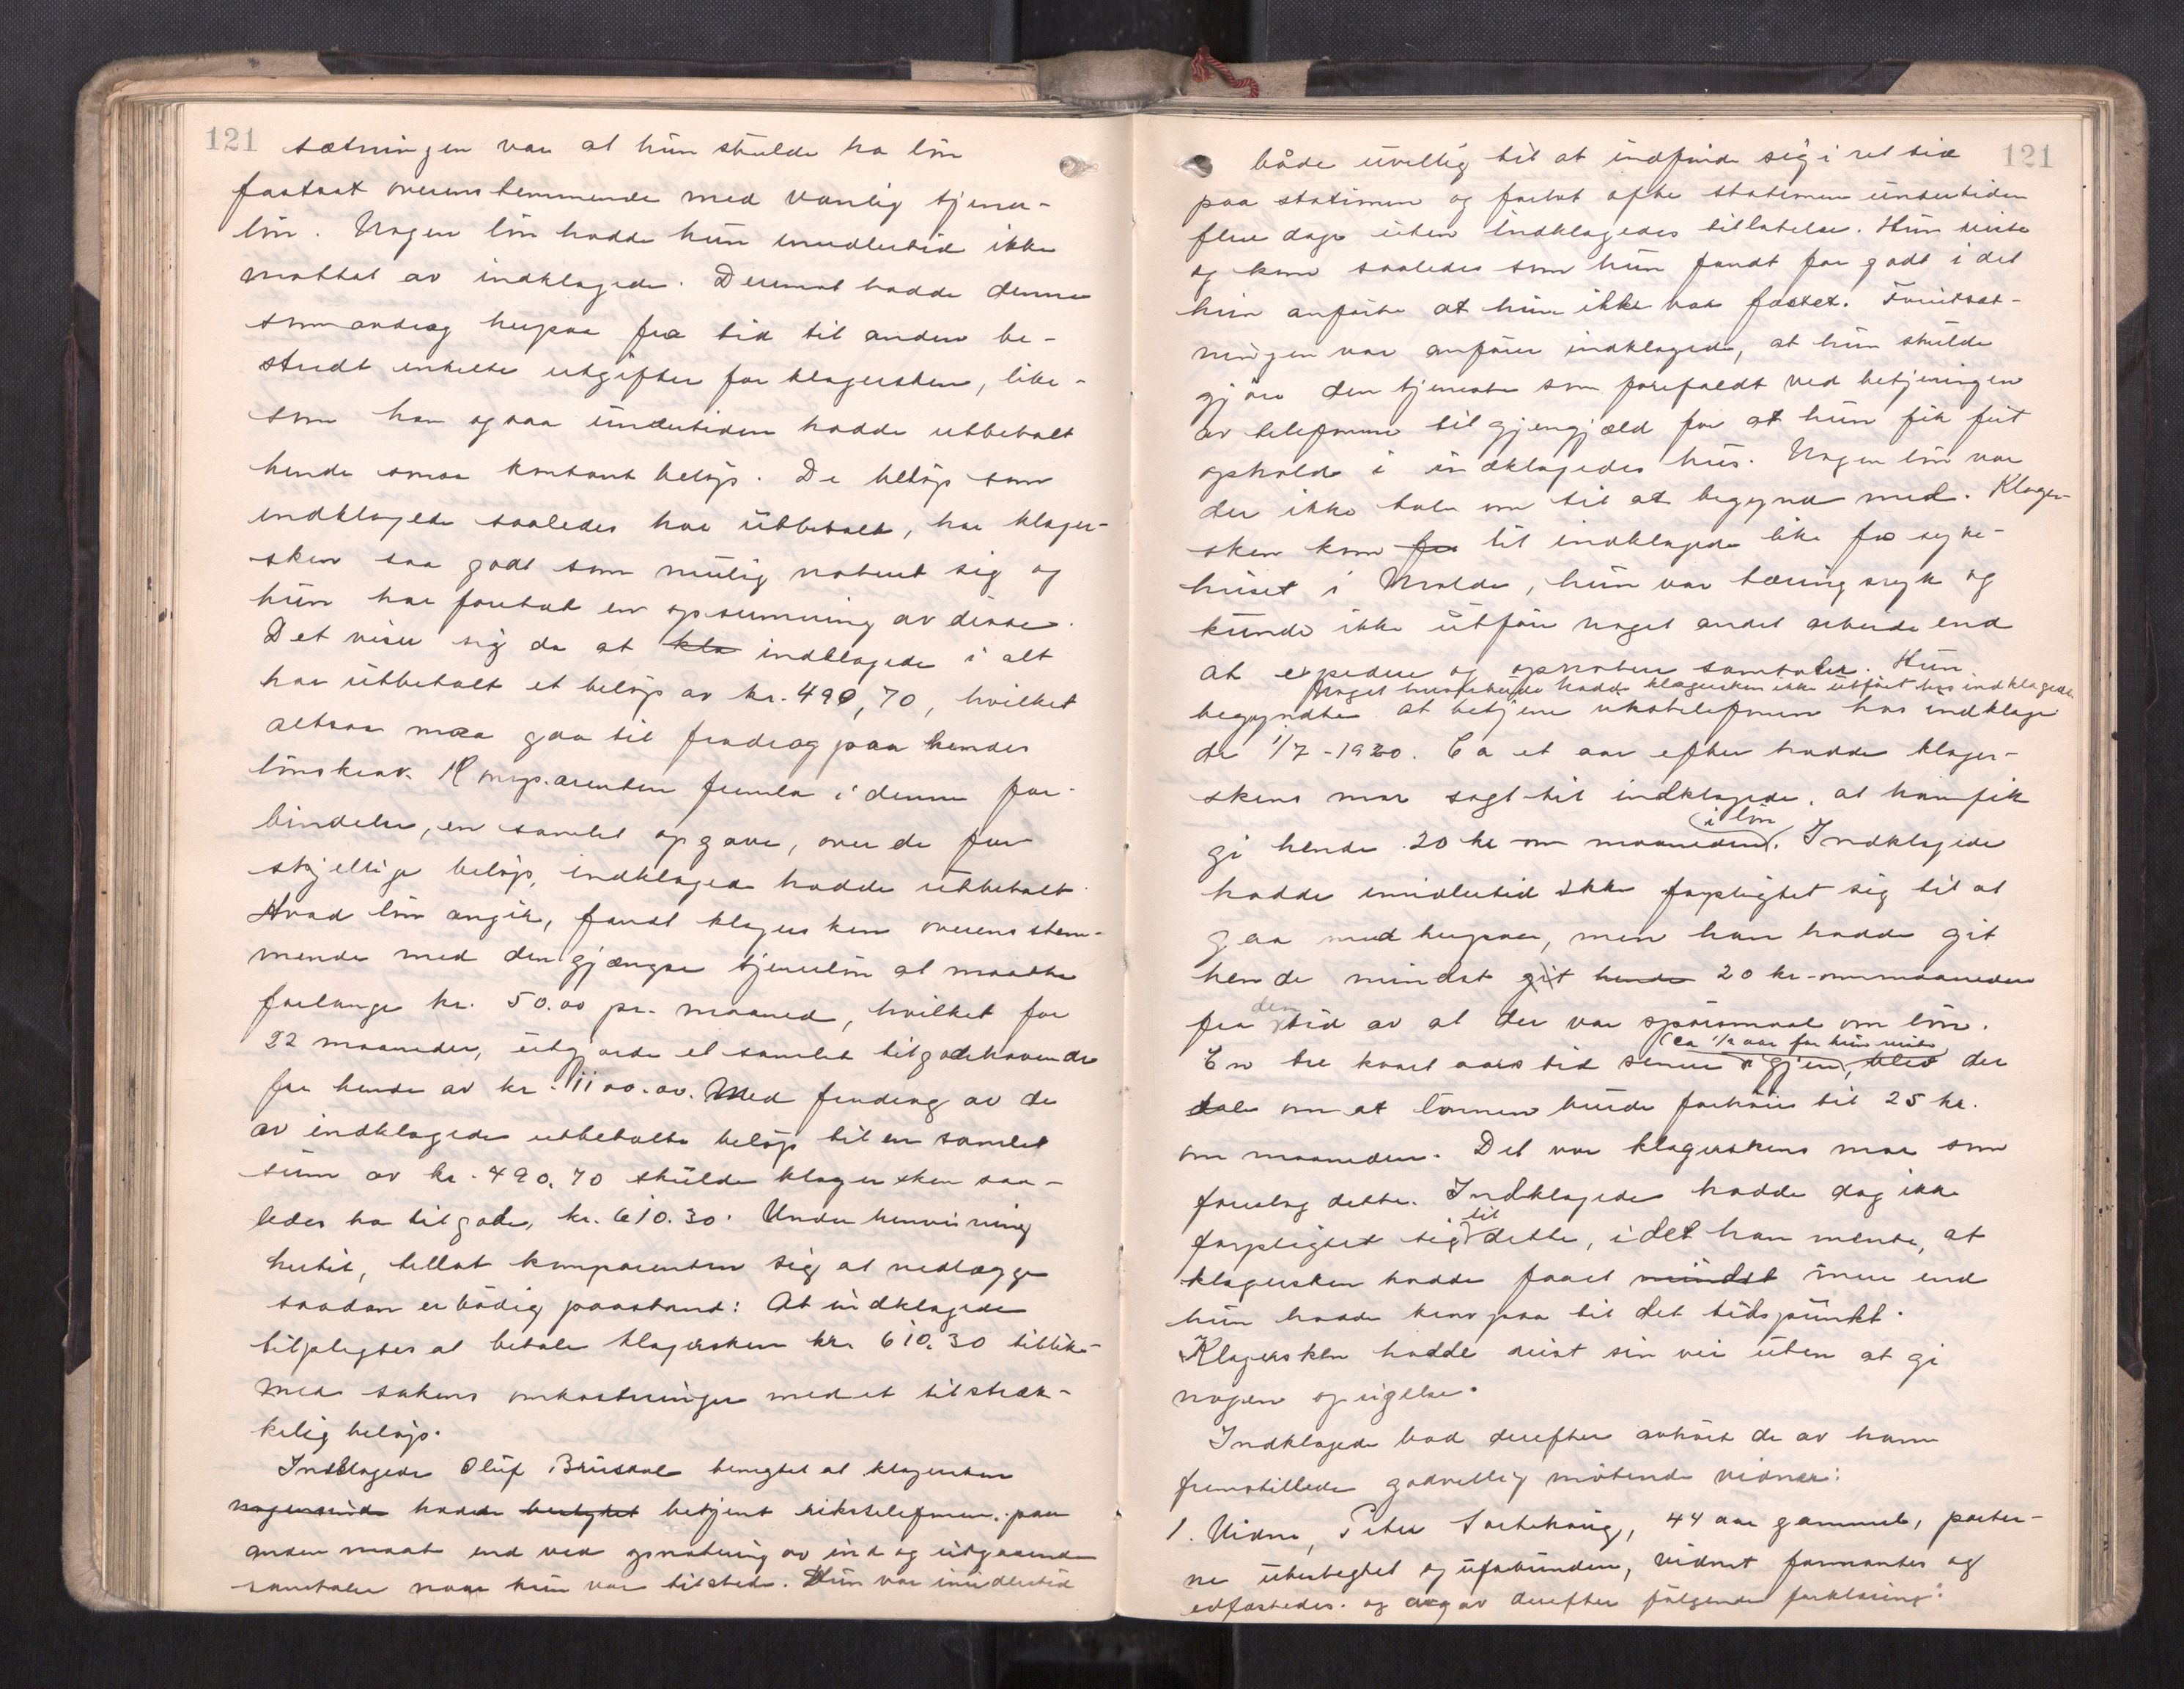 121
sætningen var at hun skulde ha lön
fastsat overenstemmende med vanlig tjener-
lön. Nogen lön hadde hun imidlertid ikke
mottat av indklagede. Derimot hadde denne
som avdrag herpaa fra tid til anden be-
stridt enkelte utgifter for klagersken, like-
som han ogsaa undertiden hadde utbetalt
hende smaa kontant belöp. De belöp som
indklagede saaledes har utbetalt, har klager-
sken saa godt som mulig notert sig og
hun har foretat en opsumming av disse.
Det viser sig da at kla indklagede i alt
har utbetalt et belöp av kr. 490,70, hvilket
altsaa maa gaa til fradrag paa hendes
lönskrav. Komparenten fremla i denne for-
bindelse, en samlet opgave, over de for-
skjellige belöp, indklagede hadde utbetalt.
Hvad lön angik, fandt klagersken overensstem-
mende med den gjængse tjenerlön at maatte
forlange kr. 50.00 pr. maaned, hvilket for
22 maaneder, utgjorde et samlet tilgodehavende
for hende av kr. 1100.00. Med fradrag av de
av indklagede utbetalte belöp til en samlet
sum av kr. 490.70 skulde klagersken saa-
ledes ha tilgode, kr. 610.30. Under henvisning
hertil, tillot komparenten sig at nedlægge
saadan erbödig paastand: At indklagede
tilpligtes at betale klagersken kr. 610.30 tillike-
med sakens omkostninger med et tilstræk-
kelig belöp.
Indklagede Oluf Bruaset benegtet at klagersken
nogensinde hadde betjent rikstelefonen paa
anden maate end ved opnotering av ind og utgaaende
samtaler naar hun var tilstede. Hun var imidlertid
121
både uvillig til at indfinde sig i ret tid
paa stationen og forlot ofte stationen undertiden
flere dage uten indklagedes tillatelse. Hun reiste
og kom saaledes som hun fandt for godt i det
hun anförte at hun ikke var fæstet. Forutsæt-
ningen var anförer indklagede, at hun skulde
gjöre den tjeneste som forefaldt ved betjeningen
av telefonen til gjengjæld for at hun fik frit
ophold i indklagedes hus. Nogen lön var
der ikke tale om til at begynde med. Klager-
sken kom fra til indklagede like fra syke-
huset i Molde, hun var tæringssyk og
kunde ikke utföre noget andet arbeide end
at expedere og opnotere samtaler. Hun
Noget husarbeide hadde klagersken ikke utfört hos indklagede
begyndte at betjene rikstelefonen hos indklage
de 1/7-1920. Ca et aar efter hadde klager-
skens mor sagt til indklagede, at han fik
gi hende 20 kr om maaneden i lön. Indklagede
hadde imidlertid ikke forpligtet sig til at
gaa med herpaa, men han hadde git
hende mindst git hende 20 kr. om maaneden
fra den tid av at der var spörsmaal om lön.
ca 1/2 aar för hun reiste
En tre kvart aars tid senere igjen, blev der
tale om at lönnen burde forhöies til 25 kr.
om maaneden. Det var klagerskens mor som
foreslog dette. Indklagede hadde dog ikke
forpligtet sig til dette, i det han mente, at
klagersken hadde faaet mindst mere end
hun hadde krav paa til det tidspunkt.
Klagersken hadde reist sin vei uten at gi
nogen opsigelse.
Indklagede bad derefter avhört de av ham
fremstillede godvillig mötende vidner:
1. Vidne, Peter Sortehaug, 44 aar gammel, parter-
ne ubeslegtet og uforbunden, vidnet formantes og
edfæstedes. og avgav derefter fölgende forklaring: